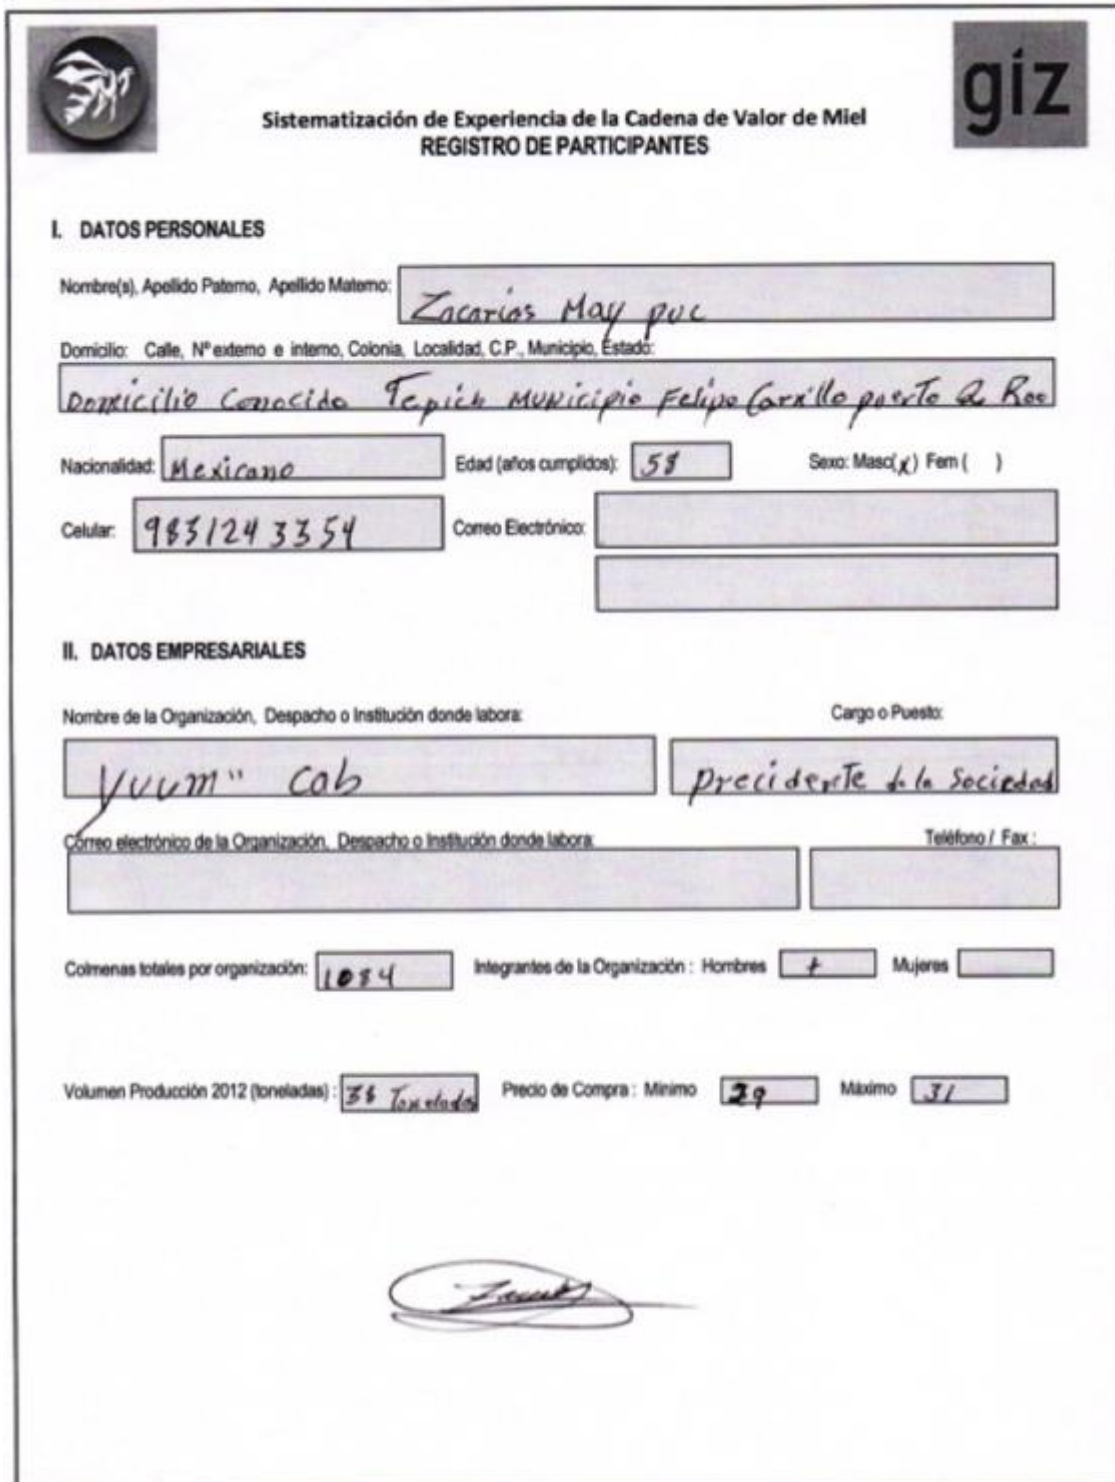 giz
Sistematización de Experiencia de la Cadena de Valor de Miel
REGISTRO DE PARTICIPANTES
I. DATOS PERSONALES
Nombre(s), Apellido Paterno, Apellido Materno: Zacarias May puc
Domicilio: Calle, N° externo e interno, Colonia, Localidad, C.P., Municipio, Estado:
Domicilio Conocido Tepich Municipio Felipe Carrillo puerto Q Roo
Nacionalidad: Mexicano Edad (años cumplidos): 58 Sexo: Masc(x) Fem ( )
Celular: 983124 3354 Correo Electrónico:
II. DATOS EMPRESARIALES
Nombre de la Organización, Despacho o Institución donde labora: Cargo o Puesto:
Yuum" Cab Precidente de la Sociedad
Correo electrónico de la Organización, Despacho o Institución donde labora: Teléfono / Fax :
Colmenas totales por organización: 1084 Integrantes de la Organización : Hombres Mujeres
Volumen Producción 2012 (toneladas) : 38 Toneladas Precio de Compra : Mínimo 29 Máximo 31